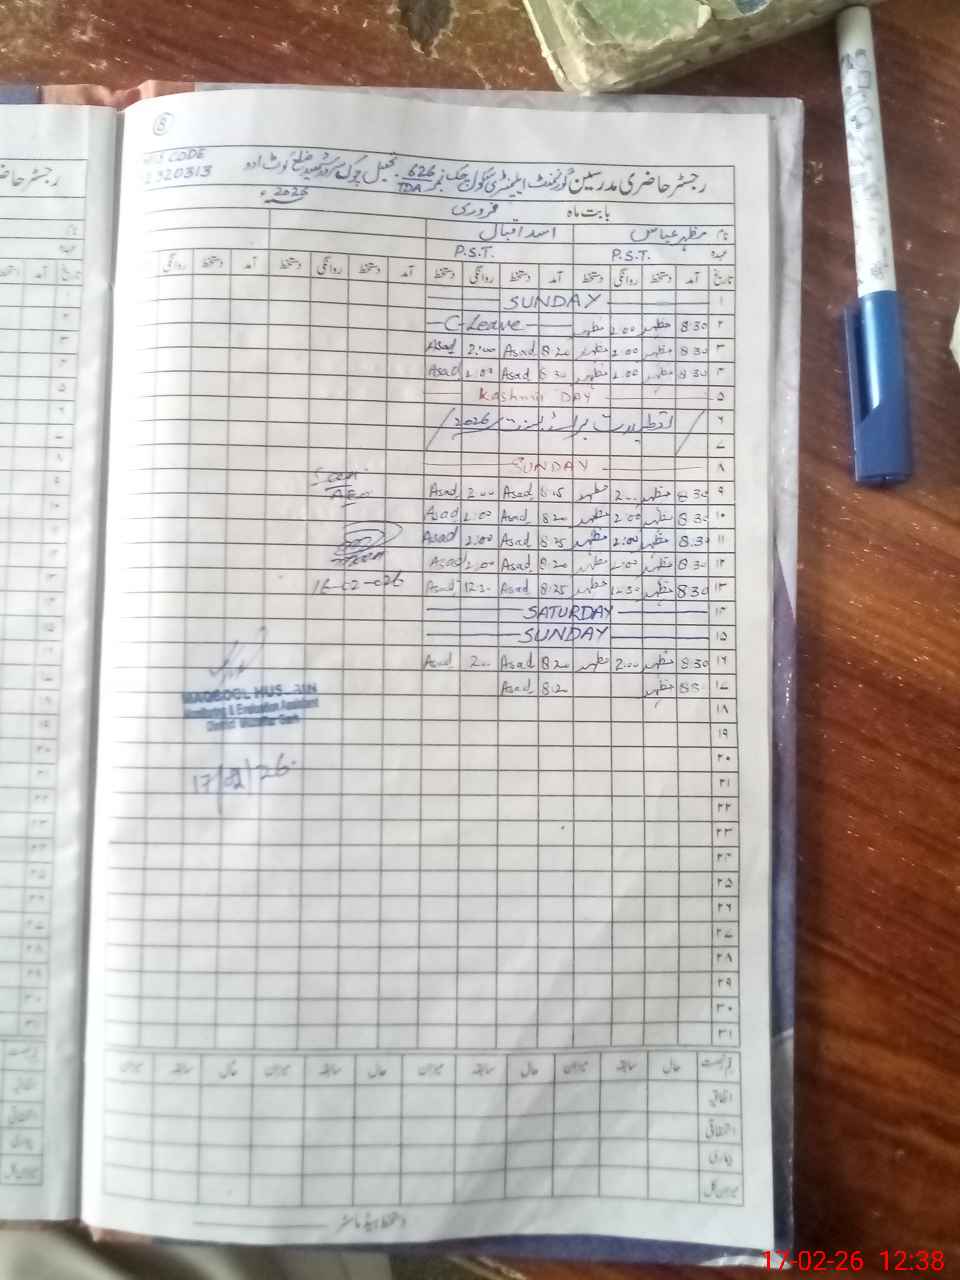 8
CODE
رجسٹر حاضری مدرسین گورنمنٹ ایلیمنٹری سکول چک نمبر 626/TDA تحصیل چوک سرور شہید ضلع کوٹ ادو
بابت ماہ فروری 2026ء
نام مظہر عباس اسد اقبال
عہدہ P.S.T. P.S.T.
تاریخ آمد دستخط روانگی دستخط آمد دستخط روانگی دستخط آمد دستخط روانگی دستخط آمد دستخط روانگی
۱ SUNDAY
۲ 8:30 مظہر 2:00 مظہر C-Leave
۳ 8:30 مظہر 2:00 مظہر 8:20 Asad 2:00 Asad
۴ 8:30 مظہر 2:00 مظہر 8:30 Asad 2:00 Asad
۵ Kashmir DAY
۶ 2026
۷
۸ SUNDAY
۹ 8:30 مظہر 2:00 مظہر 8:15 Asad 2:00 Asad
۱۰ 8:30 مظہر 2:00 مظہر 8:20 Asad 2:00 Asad
۱۱ 8:30 مظہر 2:00 مظہر 8:25 Asad 2:00 Asad
۱۲ 8:30 مظہر 2:00 مظہر 8:20 Asad 2:00 Asad
۱۳ 8:30 مظہر 12:30 مظہر 8:25 Asad 12:30 Asad
۱۴ SATURDAY
۱۵ SUNDAY
۱۶ 8:30 مظہر 2:00 مظہر 8:20 Asad 2:00 Asad
۱۷ مظہر 8:20 Asad
۱۸
۱۹
۲۰
۲۱
۲۲
۲۳
۲۴
۲۵
۲۶
۲۷
۲۸
۲۹
۳۰
۳۱
Monitoring & Evaluation Assistant
District Muzaffar Garh
17/02/26
حال سابقہ میزان حال سابقہ میزان حال سابقہ میزان حال سابقہ میزان
اتفاقیہ
استحقاقی
بیماری
میزان کل
دستخط ہیڈ ماسٹر
17-02-26 12:38